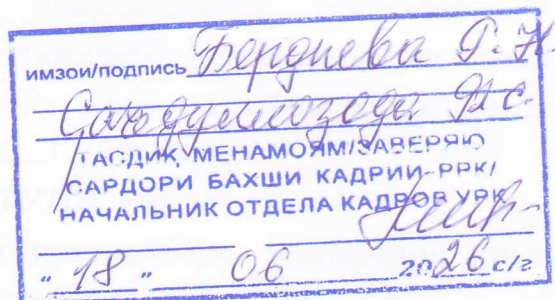 имзои/подпись Бердиева Г. Н.
Саъдуллозода Ф. С.
ТАСДИҚ МЕНАМОЯМ/ЗАВЕРЯЮ
САРДОРИ БАХШИ КАДРИИ РРК/
НАЧАЛЬНИК ОТДЕЛА КАДРОВ УРК
" 18 " 06 2026 с/г